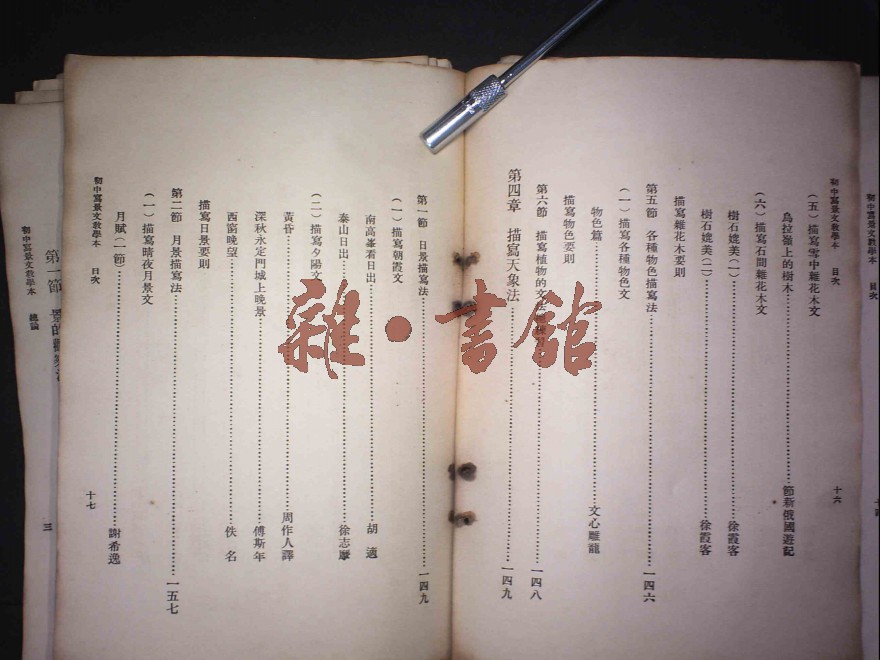 初中寫景文敎學本　目次
（五）描寫雪中雜花木文
烏拉嶺上的樹木……節新俄國遊記
（六）描寫石間雜花木文
樹石媲美（一）……徐霞客
樹石媲美（二）……徐霞客
描寫雜花木要則
第五節　各種物色描寫法……一四六
（一）描寫各種物色文
物色篇……文心雕龍
描寫物色要則
第六節　描寫植物的文……一四八
第四章　描寫天象法……一四九
十六
第一節　日景描寫法……一四九
（一）描寫朝霞文
南高峯看日出……胡適
泰山日出……徐志摩
（二）描寫夕陽文
黃昏……周作人譯
深秋永定門城上晚景……傅斯年
西窗晚望……佚名
描寫日景要則
第二節　月景描寫法……一五七
（一）描寫晴夜月景文
月賦（一節）……謝希逸
初中寫景文敎學本　目次
十七
初中寫景文敎學本　總論
第一節　景的
三
初中寫景文敎學本　目次
雜·書館